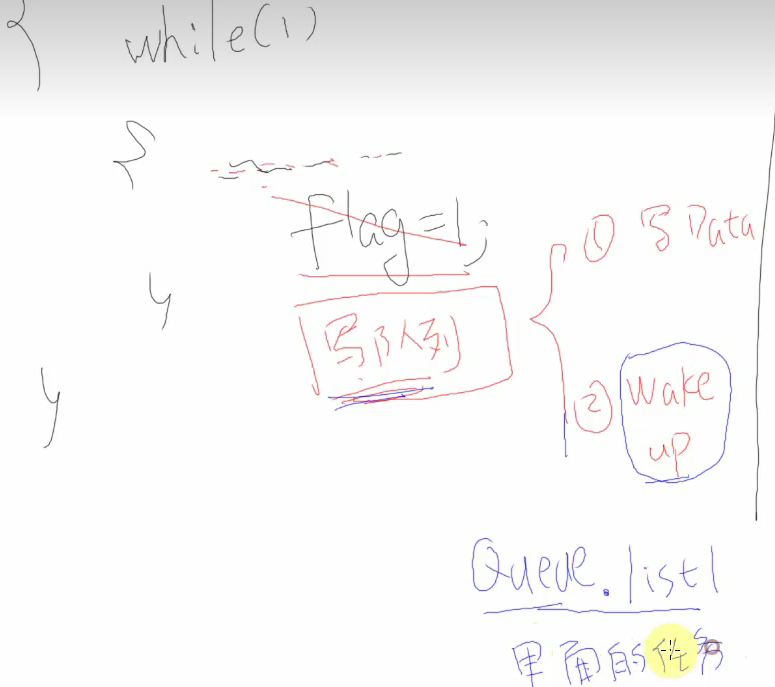 { while(1)
{
Flag=1;
① 写 Data
}
写队列
② Wake
up
}
Queue.list1
里面的任务